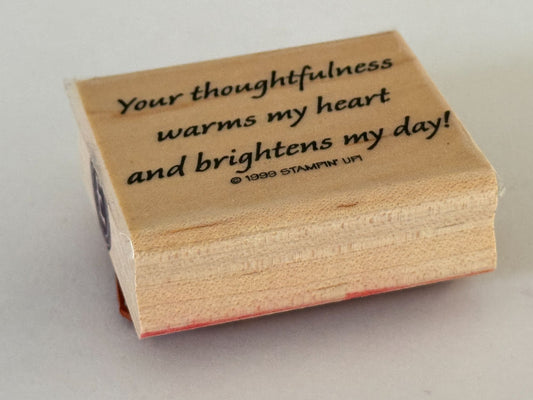 Your thoughtfulness
warms my heart
and brightens my day!
© 1999 STAMPIN' UP!